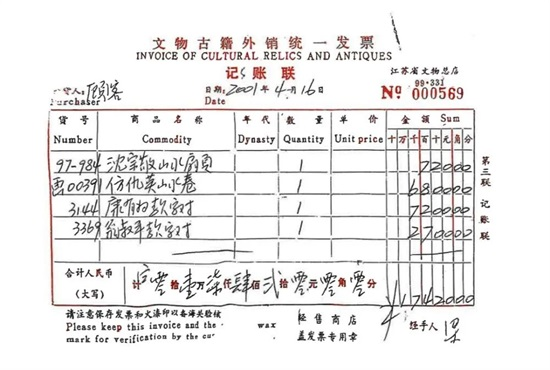 文物古籍外销统一发票
INVOICE OF CULTURAL RELICS AND ANTIQUES
记账联
江苏省文物总店
99·331
货人：顾客
日期：2001年4月16日
№ 000569
Purchaser
Date
货号 商品名称 年代 数量 单价 金额 Sum
Number Commodity Dynasty Quantity Unit price 十万千百十元角分
97-984 沈宗敬山水扇頁 1 72000
00391 仿仇英山水卷 1 680000
3144 康有为款字对 1 720000
3369 翁叔平款字对 1 270000
第三联 记账联
合计人民币（大写） 计 零拾壹万柒仟肆佰弍拾零元零角零分 1742000
请注意保存发票和火漆印以备海关验核
Please keep this invoice and the wax
mark for verification by the
经售商店
盖发票专用章
经手人 梁